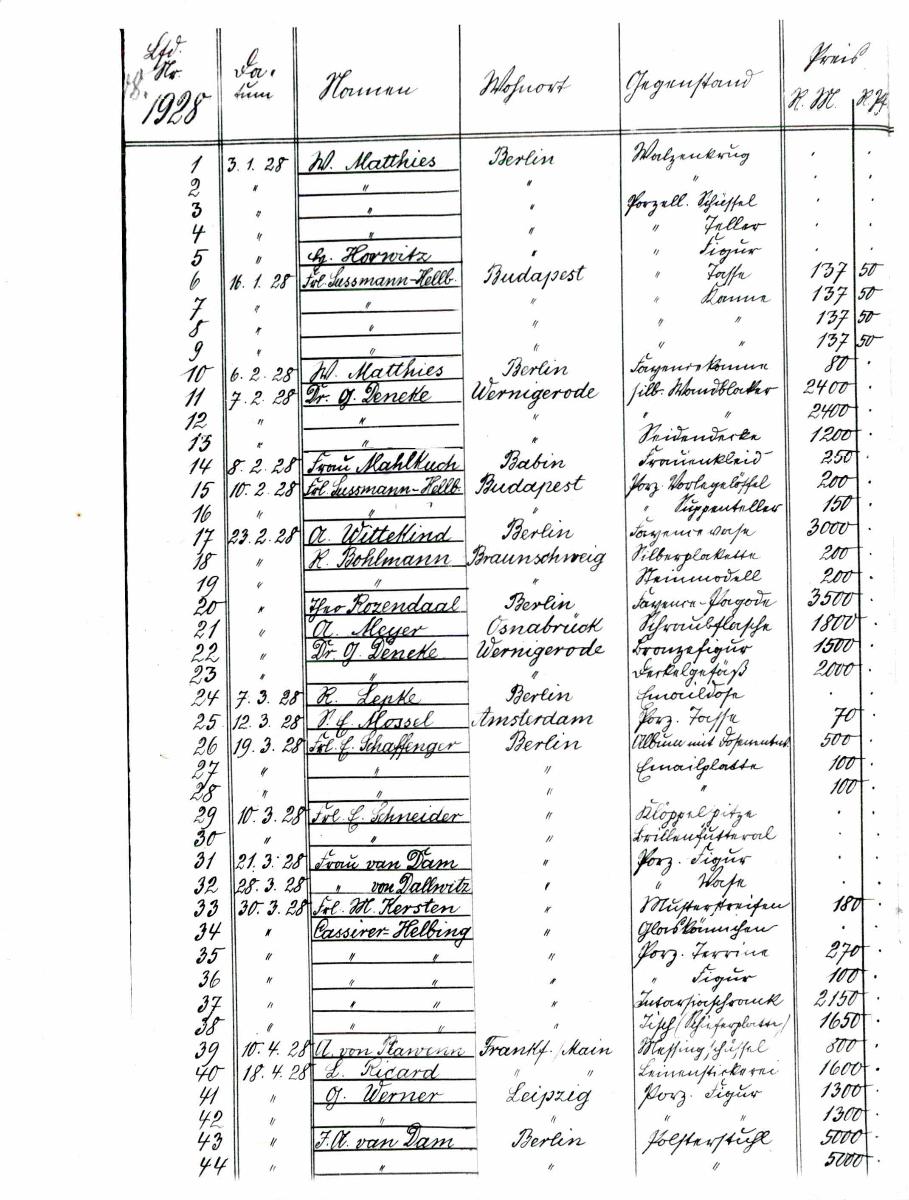 Lfd. Nr. Da- tum Namen Wohnort Gegenstand Preis
1928 R. M. R. Pf
1 3. 1. 28 W. Matthies Berlin Walzenkrug . .
2 " " " " . .
3 " " " Porzell. Schüssel . .
4 " " " " Teller . .
5 " Hy. Horwitz " " Figur . .
6 16. 1. 28 Frl. Sussmann-Hellb. Budapest " Tasse 137 50
7 " " " " Kanne 137 50
8 " " " " " 137 50
9 " " " " " 137 50
10 6. 2. 28 W. Matthies Berlin Fayencekanne 80 .
11 7. 2. 28 Dr. G. Deneke Wernigerode silb. Wandblaker 2400 .
12 " " " " " 2400 .
13 " " " Seidendecke 1200 .
14 8. 2. 28 Frau Mahlkuch Babin Frauenkleid 250 .
15 10. 2. 28 Frl. Sussmann-Hellb. Budapest Porz. Vorlegelöffel 200 .
16 " " " " Suppenteller 150 .
17 23. 2. 28 A. Wittekind Berlin Fayencevase 3000 .
18 " R. Bohlmann Braunschweig Silberplakette 200 .
19 " " " Steinmodell 200 .
20 " Theo Rozendaal Berlin Fayence-Pagode 3500 .
21 " A. Meyer Osnabrück Schraubflasche 1800 .
22 " Dr. G. Deneke Wernigerode Bronzefigur 1500 .
23 " " " Deckelgefäß 2000 .
24 7. 3. 28 R. Lepke Berlin Emaildose . .
25 12. 3. 28 S. E. Mossel Amsterdam Porz. Tasse 70 .
26 19. 3. 28 Frl. E. Schaffenger Berlin Album mit 500 .
27 " " " Emailplatte 100 .
28 " " " " 100 .
29 10. 3. 28 Frl. E. Schneider " Klöppelspitze . .
30 " " " Brillenfutteral . .
31 21. 3. 28 Frau van Dam " Porz. Figur . .
32 28. 3. 28 " von Dallwitz " " Vase . .
33 30. 3. 28 Frl. M. Kersten " Musterstreifen 180 .
34 " Cassirer-Helbing " Glaskännchen . .
35 " " " " Porz. Terrine 270 .
36 " " " " " Figur 100 .
37 " " " " Intarsiaschrank 2150 .
38 " " " " Tisch (Schieferplatte) 1650 .
39 10. 4. 28 A. von Frankf./Main Messingschüssel 800 .
40 18. 4. 28 L. Ricard " " Leinenstickerei 1600 .
41 " G. Werner Leipzig Porz. Figur 1300 .
42 " " " " " 1300 .
43 " J. A. van Dam Berlin Polsterstuhl 5000 .
44 " " " " 5000 .